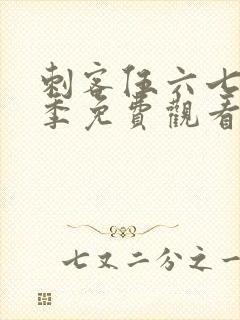 刺客伍六七
季免費觀看
七又二分之一